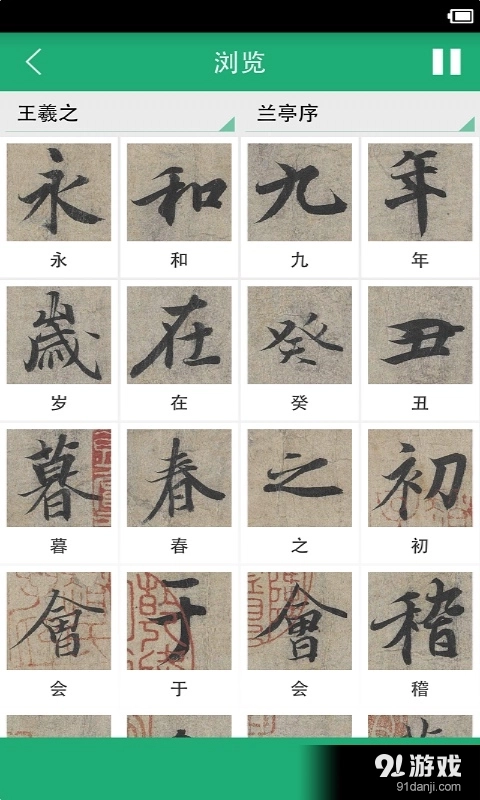 浏览
王羲之 兰亭序
永 和 九 年
永 和 九 年
歲 在 癸 丑
岁 在 癸 丑
暮 春 之 初
暮 春 之 初
會 于 會 稽
会 于 会 稽
91游戏
91danji.com